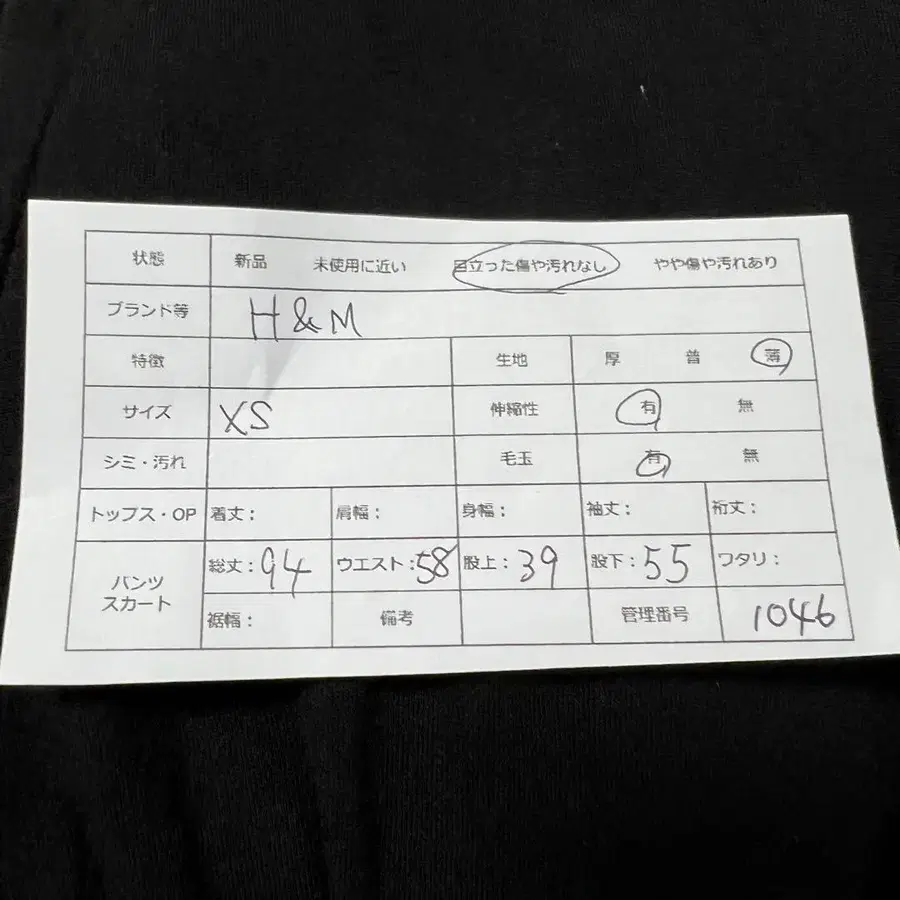 状態 新品 未使用に近い 目立った傷や汚れなし やや傷や汚れあり
ブランド等 H&M
特徴 生地 厚 普 薄
サイズ XS 伸縮性 有 無
シミ・汚れ 毛玉 有 無
トップス・OP 着丈: 肩幅: 身幅: 袖丈: 裄丈:
パンツ スカート 総丈:94 ウエスト:58 股上:39 股下:55 ワタリ:
裾幅: 備考 管理番号 1046